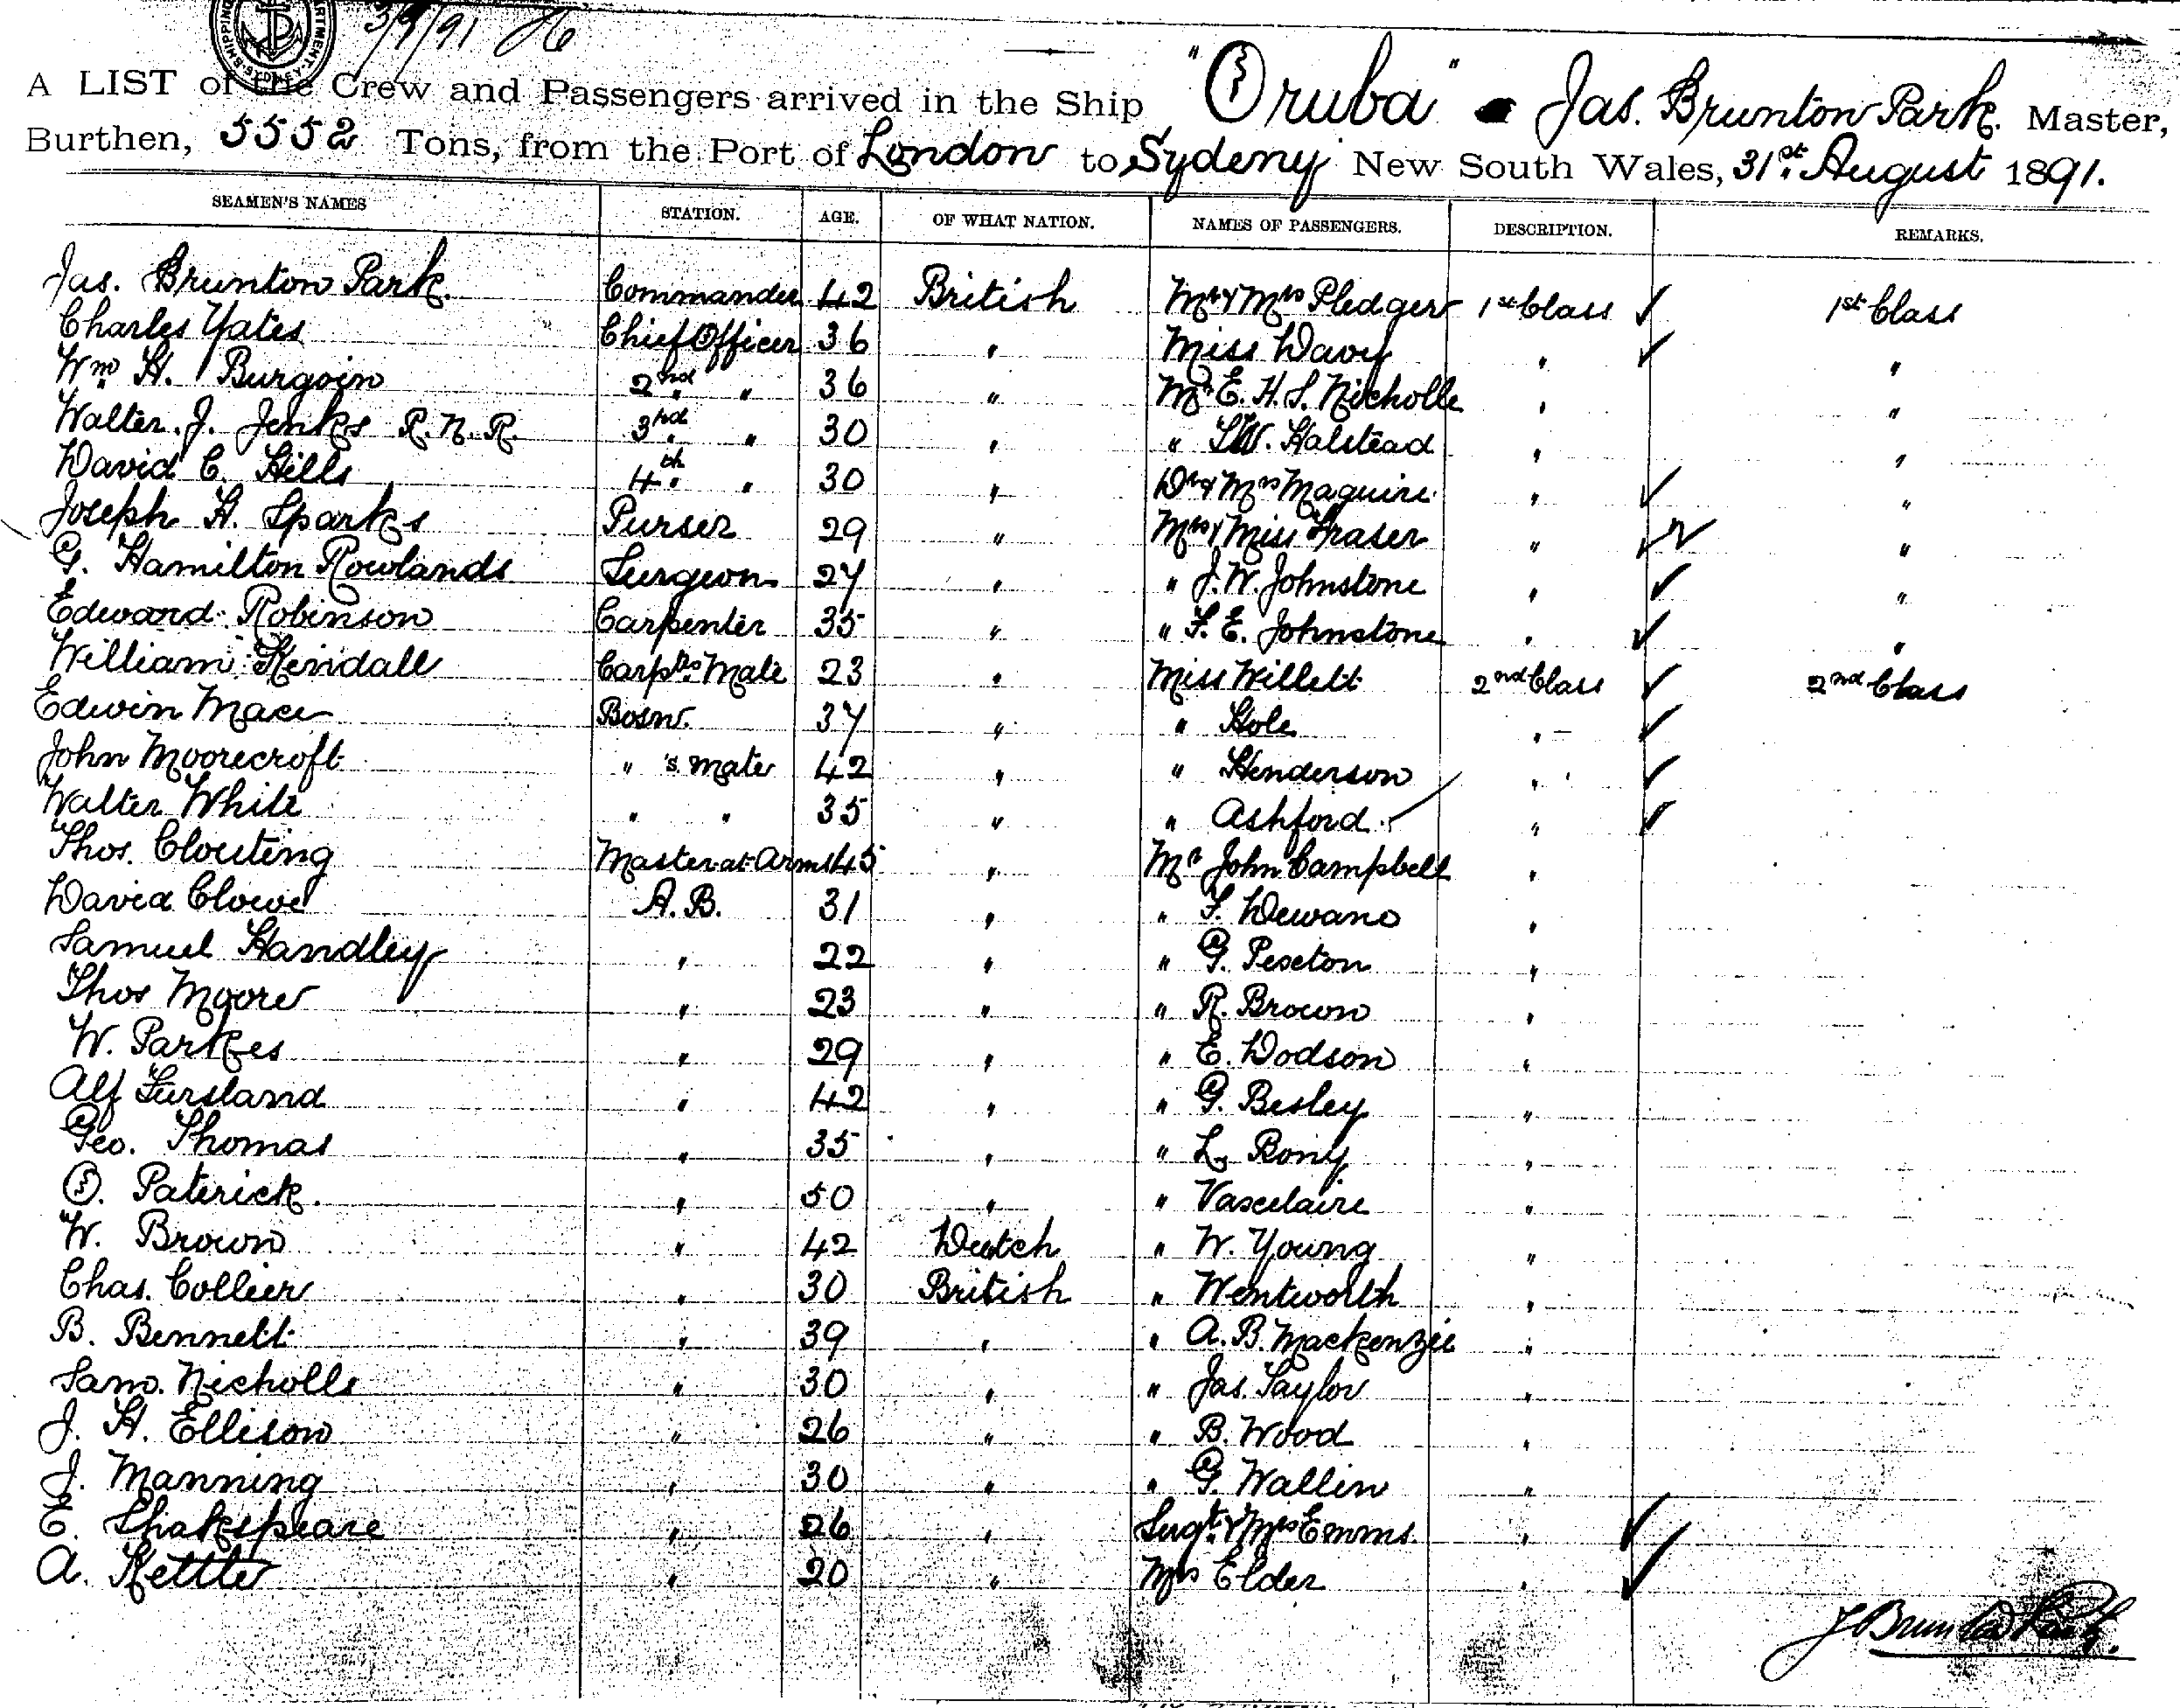 3/9/91
A LIST of the Crew and Passengers arrived in the Ship "Oruba" Jas. Brunton Park. Master,
Burthen, 5552 Tons, from the Port of London to Sydeny New South Wales, 31st August 1891.
SEAMEN'S NAMES STATION. AGE. OF WHAT NATION. NAMES OF PASSENGERS. DESCRIPTION. REMARKS.
Jas. Brunton Park. Commander 42 British Mr & Mrs Pledger 1st Class ✓ 1st Class
Charles Yates Chief Officer 36 " Miss Davy " ✓ "
Wm. H. Burgoin 2nd " 36 " Mr E. H. S. Nicholle " "
Walter. J. Jenks R.N.R. 3rd " 30 " " Halstead " "
David C. Hills 4th " 30 " Dr & Mrs Maguire " ✓ "
Joseph H. Sparks Purser 29 " Mrs & Miss Fraser " ✓ "
G. Hamilton Rowlands Surgeon 27 " " J. W. Johnstone " ✓ "
Edward Robinson Carpenter 35 " " F. E. Johnstone " ✓ "
William Kendall Carprs Mate 23 " Miss Willett 2nd Class ✓ 2nd Class
Edwin Mace Bosn. 37 " " Hole " ✓
John Moorecroft " 's mate 42 " " Henderson " ✓
Walter White " " 35 " " Ashford " ✓
Thos. Clouting Master-at-Arms 45 " Mr John Campbell "
David Clowe A.B. 31 " " F. Dewano "
Samuel Handley " 22 " " G. Peseton "
Thos Moore " 23 " " R. Brown "
W. Parkes " 29 " " E. Dodson "
Alf Fursland " 42 " " G. Besley "
Geo. Thomas " 35 " " L. Bony "
O. Paterick. " 50 " " Vascelaire "
W. Brown " 42 Dutch " W. Young "
Chas. Collier " 30 British " Wentworth "
B. Bennett " 39 " " A. B. Mackenzie "
Sam. Nicholls " 30 " " Jas. Taylor "
J. H. Ellison " 26 " " B. Wood "
J. Manning " 30 " " G. Wallin "
E. Shakespeare " 26 " Sergt & Mrs Emms. " ✓
A. Kettle " 20 " Mrs Elder " ✓
J Brunton Park.